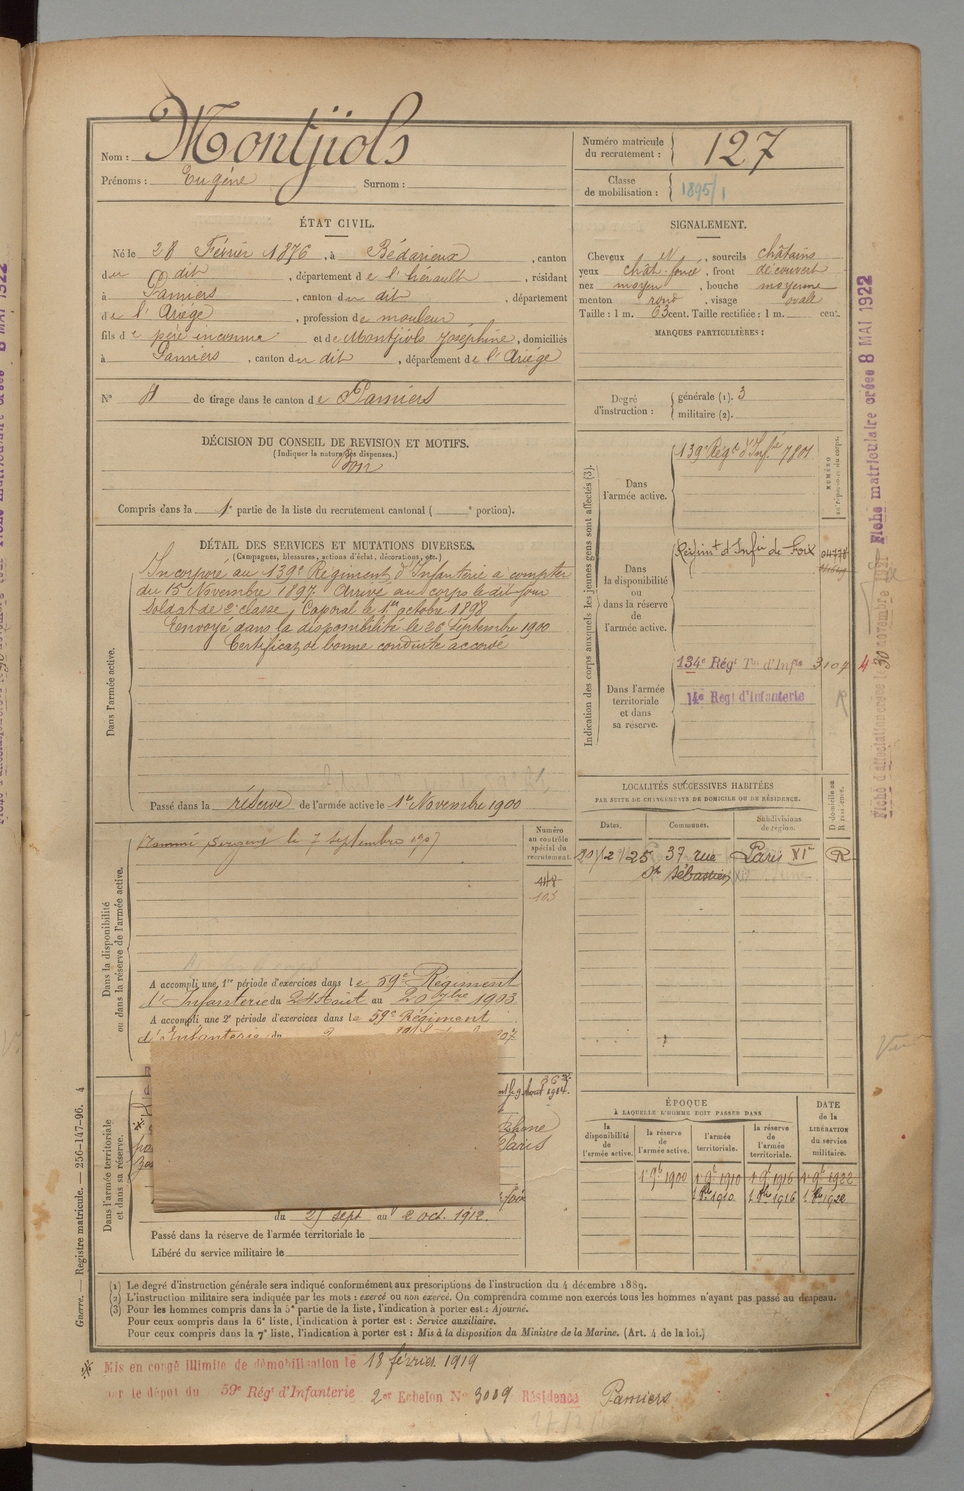 Nom : Montjiols
Prénoms : Eugène Surnom :
Numéro matricule du recrutement : 127
Classe de mobilisation : 1895/1
ÉTAT CIVIL.
Né le 28 Février 1876, à Bédarieux, canton
du dit, département de l'hérault, résidant
à Pamiers, canton du dit, département
de l'Ariège, profession de mouleur
fils de père inconnu et de Montjiols Joséphine, domiciliés
à Pamiers, canton du dit, département de l'Ariège
N° 8 de tirage dans le canton de Pamiers
DÉCISION DU CONSEIL DE REVISION ET MOTIFS.
(Indiquer la nature des dispenses.)
Bon
Compris dans la 1e partie de la liste du recrutement cantonal ( e portion).
SIGNALEMENT.
Cheveux et, sourcils châtains
yeux chât. foncé, front découvert
nez moyen, bouche moyenne
menton rond, visage ovale
Taille : 1 m. 63 cent. Taille rectifiée : 1 m. cent.
MARQUES PARTICULIÈRES :
Degré d'instruction : générale (1). 3
militaire (2).
DÉTAIL DES SERVICES ET MUTATIONS DIVERSES.
(Campagnes, blessures, actions d'éclat, décorations, etc.)
Dans l'armée active.
Incorporé au 139e Régiment d'Infanterie a compter
du 15 Novembre 1897. Arrivé au corps le dit jour
soldat de 2e classe, Caporal le 1er octobre 1898
Envoyé dans la disponibilité le 26 septembre 1900
Certificat de bonne conduite accordé
Passé dans la réserve de l'armée active le 1er Novembre 1900
Indication des corps auxquels les jeunes gens sont affectés (3).
NUMÉRO au répertoire du corps.
Dans l'armée active.
139e Régt d'Infie 7801
Dans la disponibilité ou dans la réserve de l'armée active.
Régimt d'Infie de Foix 04778
Dans l'armée territoriale et dans sa réserve.
134e Régt Tal d'Infie 3107
14e Régt d'Infanterie
R
LOCALITÉS SUCCESSIVES HABITÉES
PAR SUITE DE CHANGEMENTS DE DOMICILE OU DE RÉSIDENCE.
Dates. Communes. Subdivisions de région. D domicile ou R résidence.
20/12/25 37 rue Paris XIe R
St Sébastien
Dans la disponibilité ou dans la réserve de l'armée active.
Numéro au contrôle spécial du recrutement.
Nommé Sergent le 7 septembre 1907
448
105
A accompli une 1re période d'exercices dans le 59e Régiment
d'Infanterie du 24 Août au 20 7bre 1903
A accompli une 2e période d'exercices dans le 59e Régiment
d'Infanterie du
Dans l'armée territoriale et dans sa réserve.
Août 1914.
Paris
Foix
du 25 sept au 2 oct. 1912.
Passé dans la réserve de l'armée territoriale le
Libéré du service militaire le
ÉPOQUE
À LAQUELLE L'HOMME DOIT PASSER DANS
la disponibilité de l'armée active. la réserve de l'armée active. l'armée territoriale. la réserve de l'armée territoriale. DATE de la LIBÉRATION du service militaire.
1er 9b 1900 1er 9b 1910 1er 9b 1916 1er 9b 1922
1 8bre 1910 1 8bre 1916 1 8bre 1922
(1) Le degré d'instruction générale sera indiqué conformément aux prescriptions de l'instruction du 4 décembre 1889.
(2) L'instruction militaire sera indiquée par les mots : exercé ou non exercé. On comprendra comme non exercés tous les hommes n'ayant pas passé au drapeau.
(3) Pour les hommes compris dans la 5e partie de la liste, l'indication à porter est : Ajourné.
Pour ceux compris dans la 6e liste, l'indication à porter est : Service auxiliaire.
Pour ceux compris dans la 7e liste, l'indication à porter est : Mis à la disposition du Ministre de la Marine. (Art. 4 de la loi.)
Mis en congé illimité de démobilisation le 18 février 1919
par le dépot du 59e Régt d'Infanterie 2er Echelon N° 3009 Résidence Pamiers
Guerre. — Registre matricule. — 256-147-96. 4
Fiche matriculaire créée 8 MAI 1922
Fiche d'affectation créée le 30 novembre